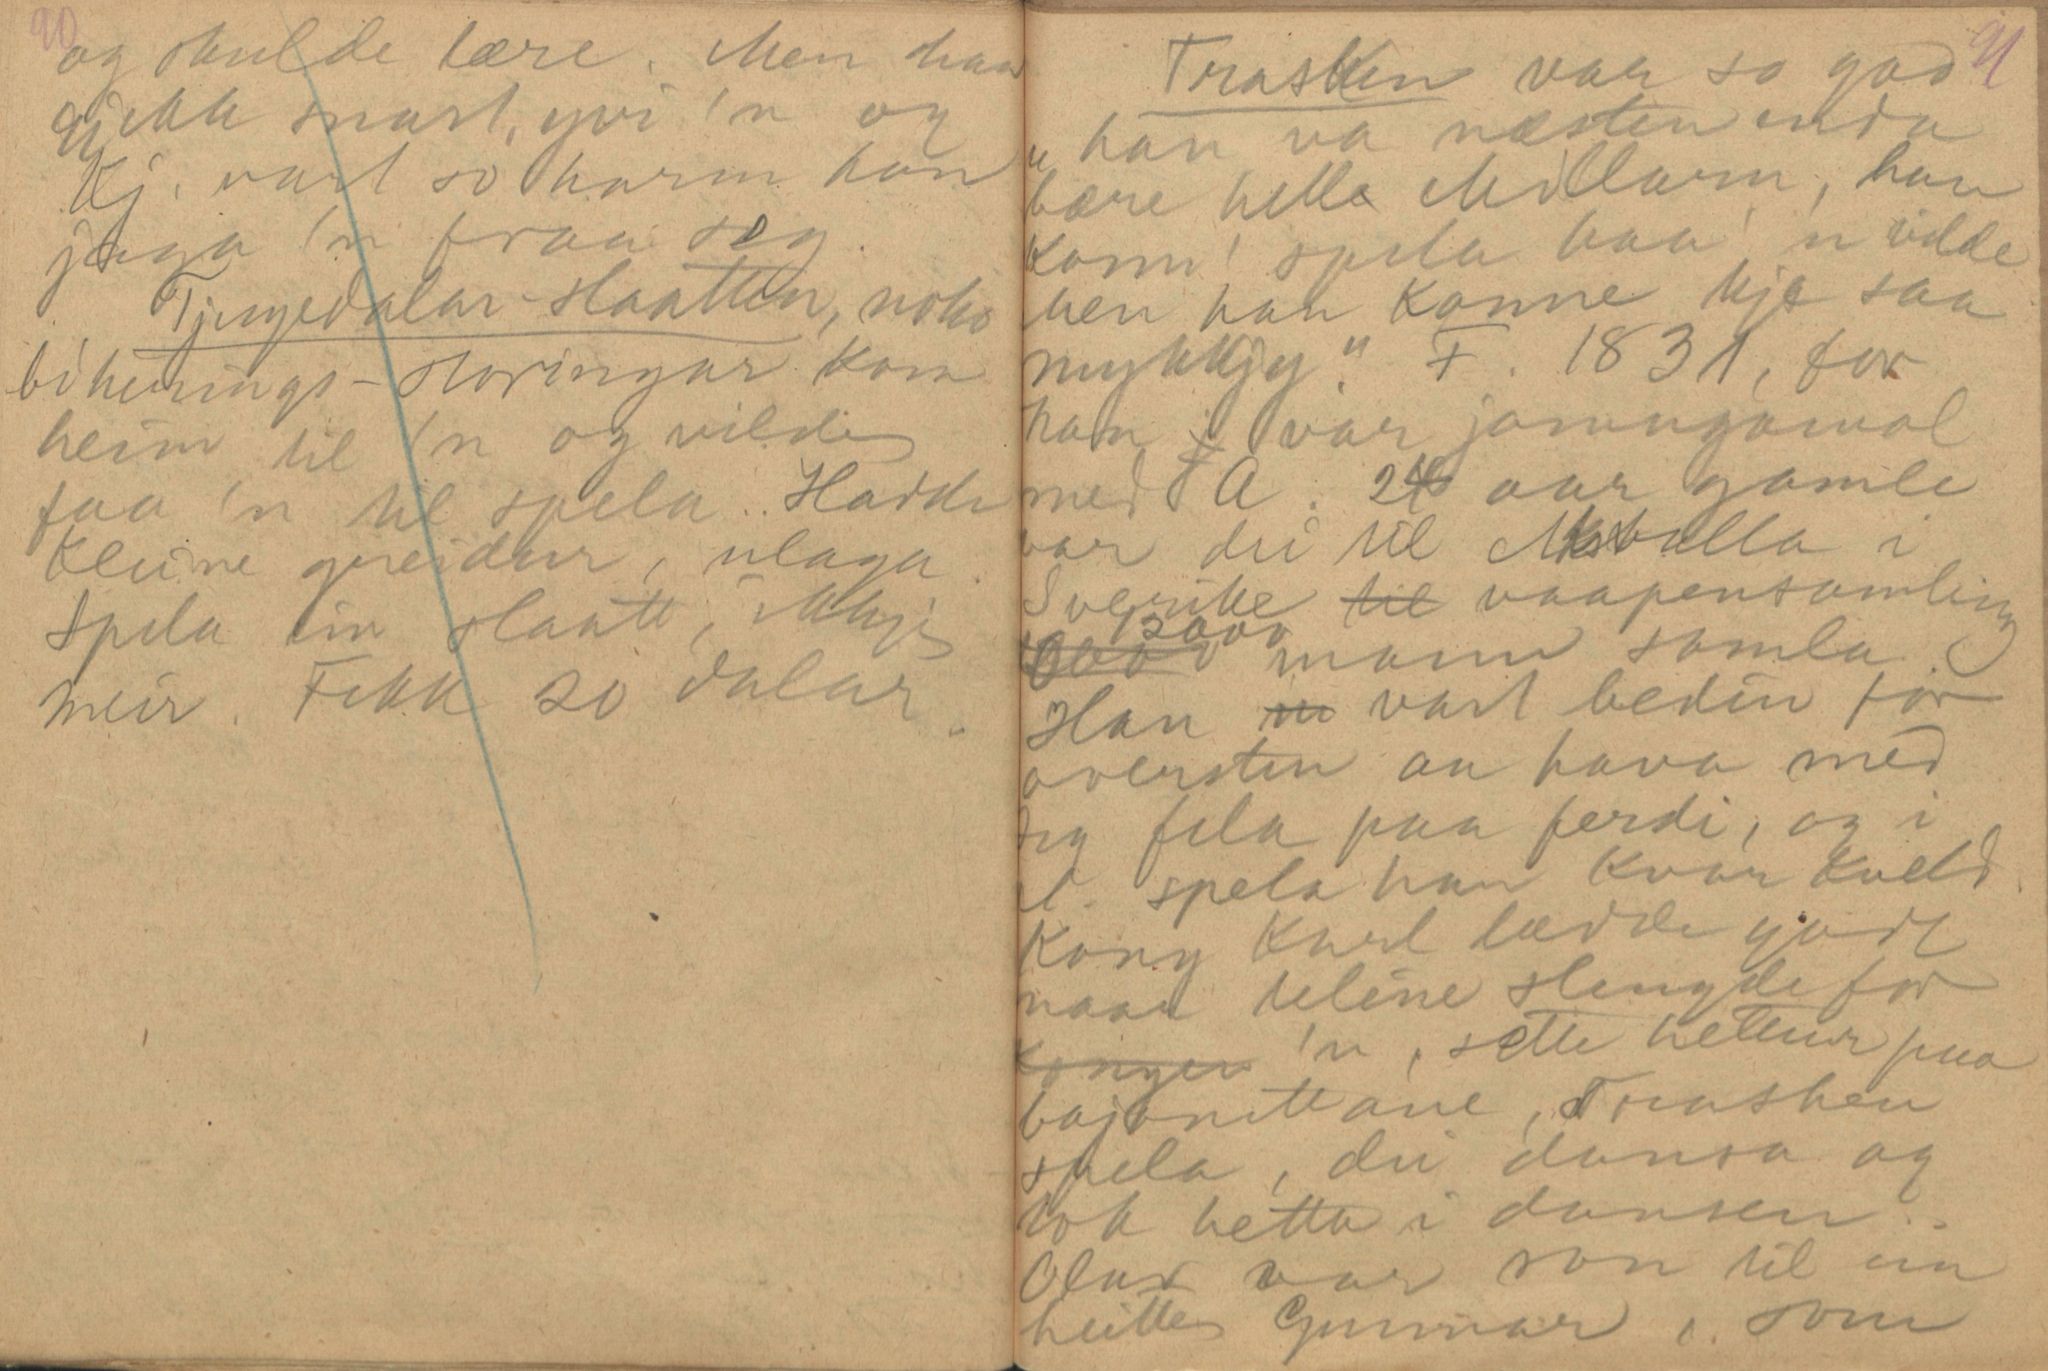 90
og skulde lære. Men han
gjekk snart yvi 'n og
Kj. vart so harm han
jaga 'n fraa seg.
Tjugedalar-slaatten, noko
bikerings-storingar kom
heim til 'n og vilde
faa 'n til spela. Hadde
kleine greidur, ulaga.
Spela ein slaatt, ikkje
meir. Fekk 20 dalar.
91
Trasken var so god
"han va næsten enda
bære hell Millarn, han
konn' spela haa 'n vilde
men han konne kje saa
mykkjy." F. 1831, for
han var jamngamal
med A. 24 aar gamle
var dei til i
Sverike til vaapensamling
12000 mann samla.
Han vart beden for
oversten aa hava med
seg fela paa ferdi, og i
l. spela han kvar kveld.
Kong Karl lædde godt
naar teléne slengde for
kongen 'n, sette hettur paa
bajonettane, Trasken
spela, dei dansa og
tok hetta i dansen.
Olav var son til ein
heitte Gunnar, som